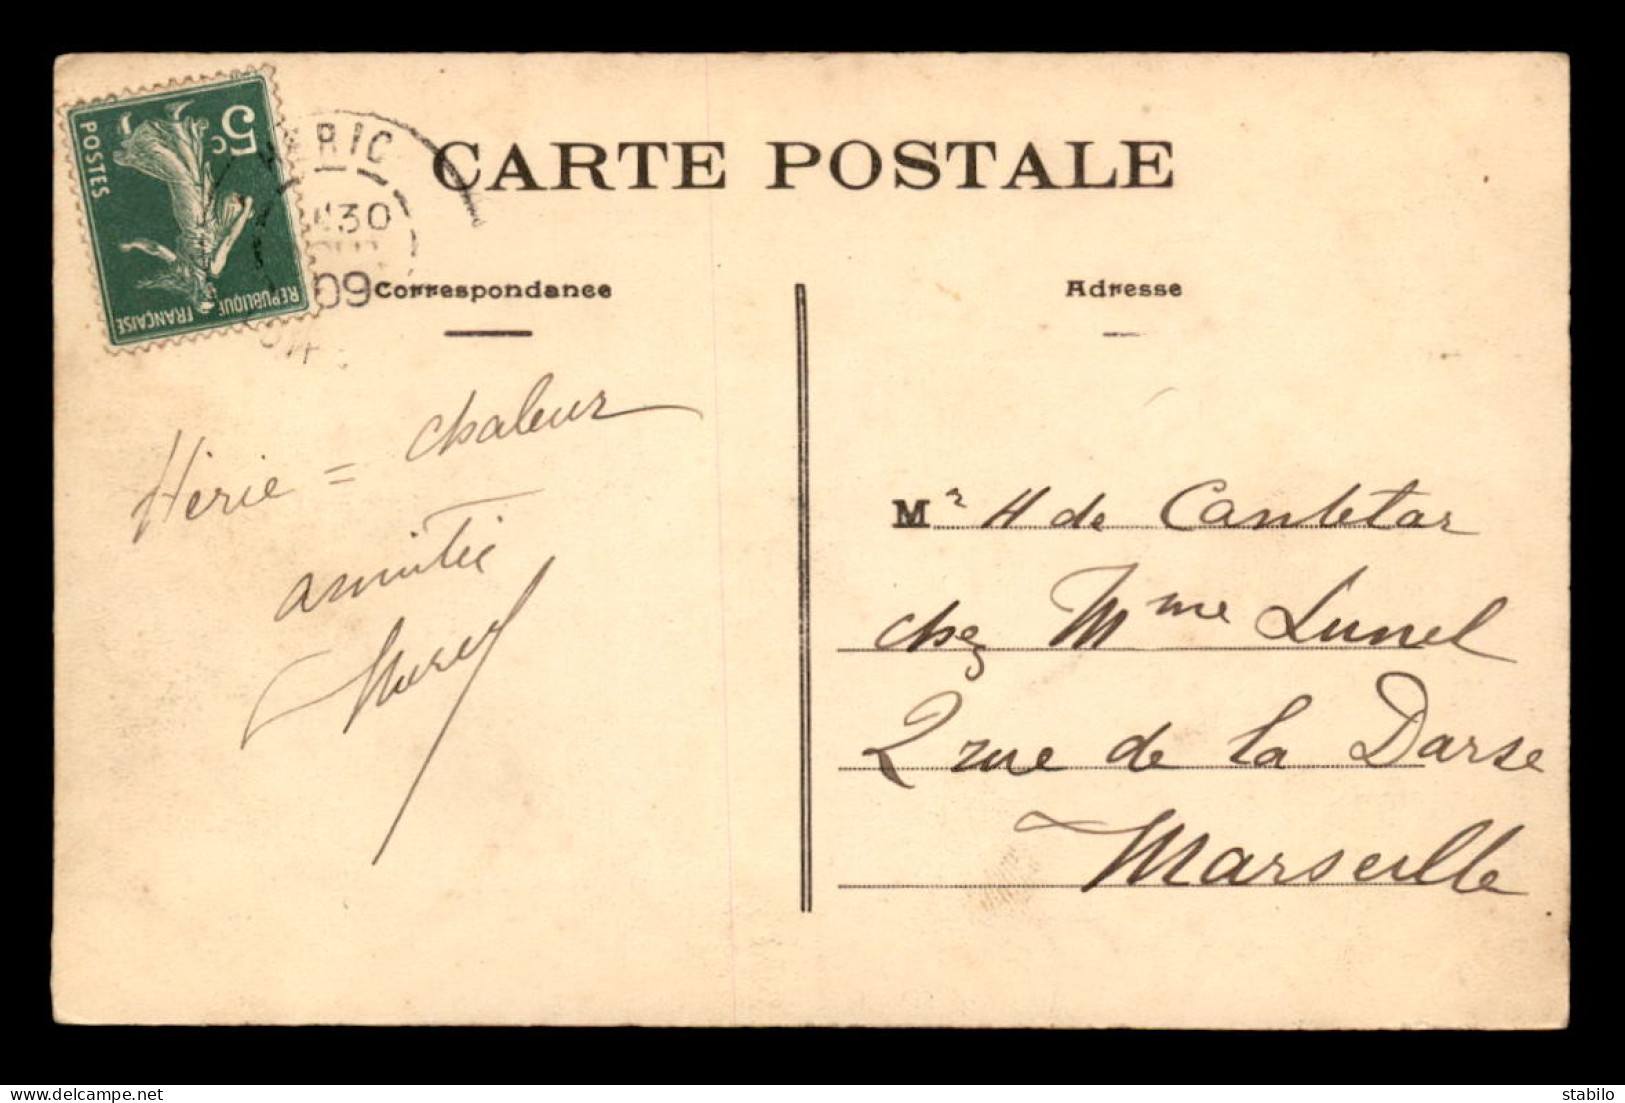 5c
POSTES
REPUBLIQUE
FRANÇAISE
RIC
30
09
CARTE POSTALE
Correspondance
Adresse
= chaleur
amitié
Mr H de Cantetar
chez Mme Lunel
2 rue de la Darse
Marseille
stabilo